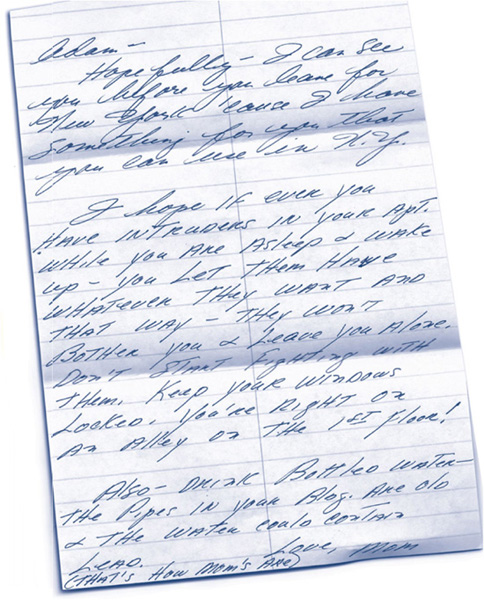 Adam—
Hopefully— I can see
you before you leave for
New York 'cause I have
something for you that
you can use in N.Y.
I hope if ever you
Have intruders in your apt.
while you are asleep & wake
up— you let them have
whatever they want and
that way— they won't
Bother you & leave you alone.
Don't start fighting with
them. Keep your windows
Locked. You're right on
an alley on the 1st floor!
Also— Drink Bottled water—
the pipes in your Bldg. are old
& the water could contain
Lead.
Love, Mom
(That's How Mom's Are)